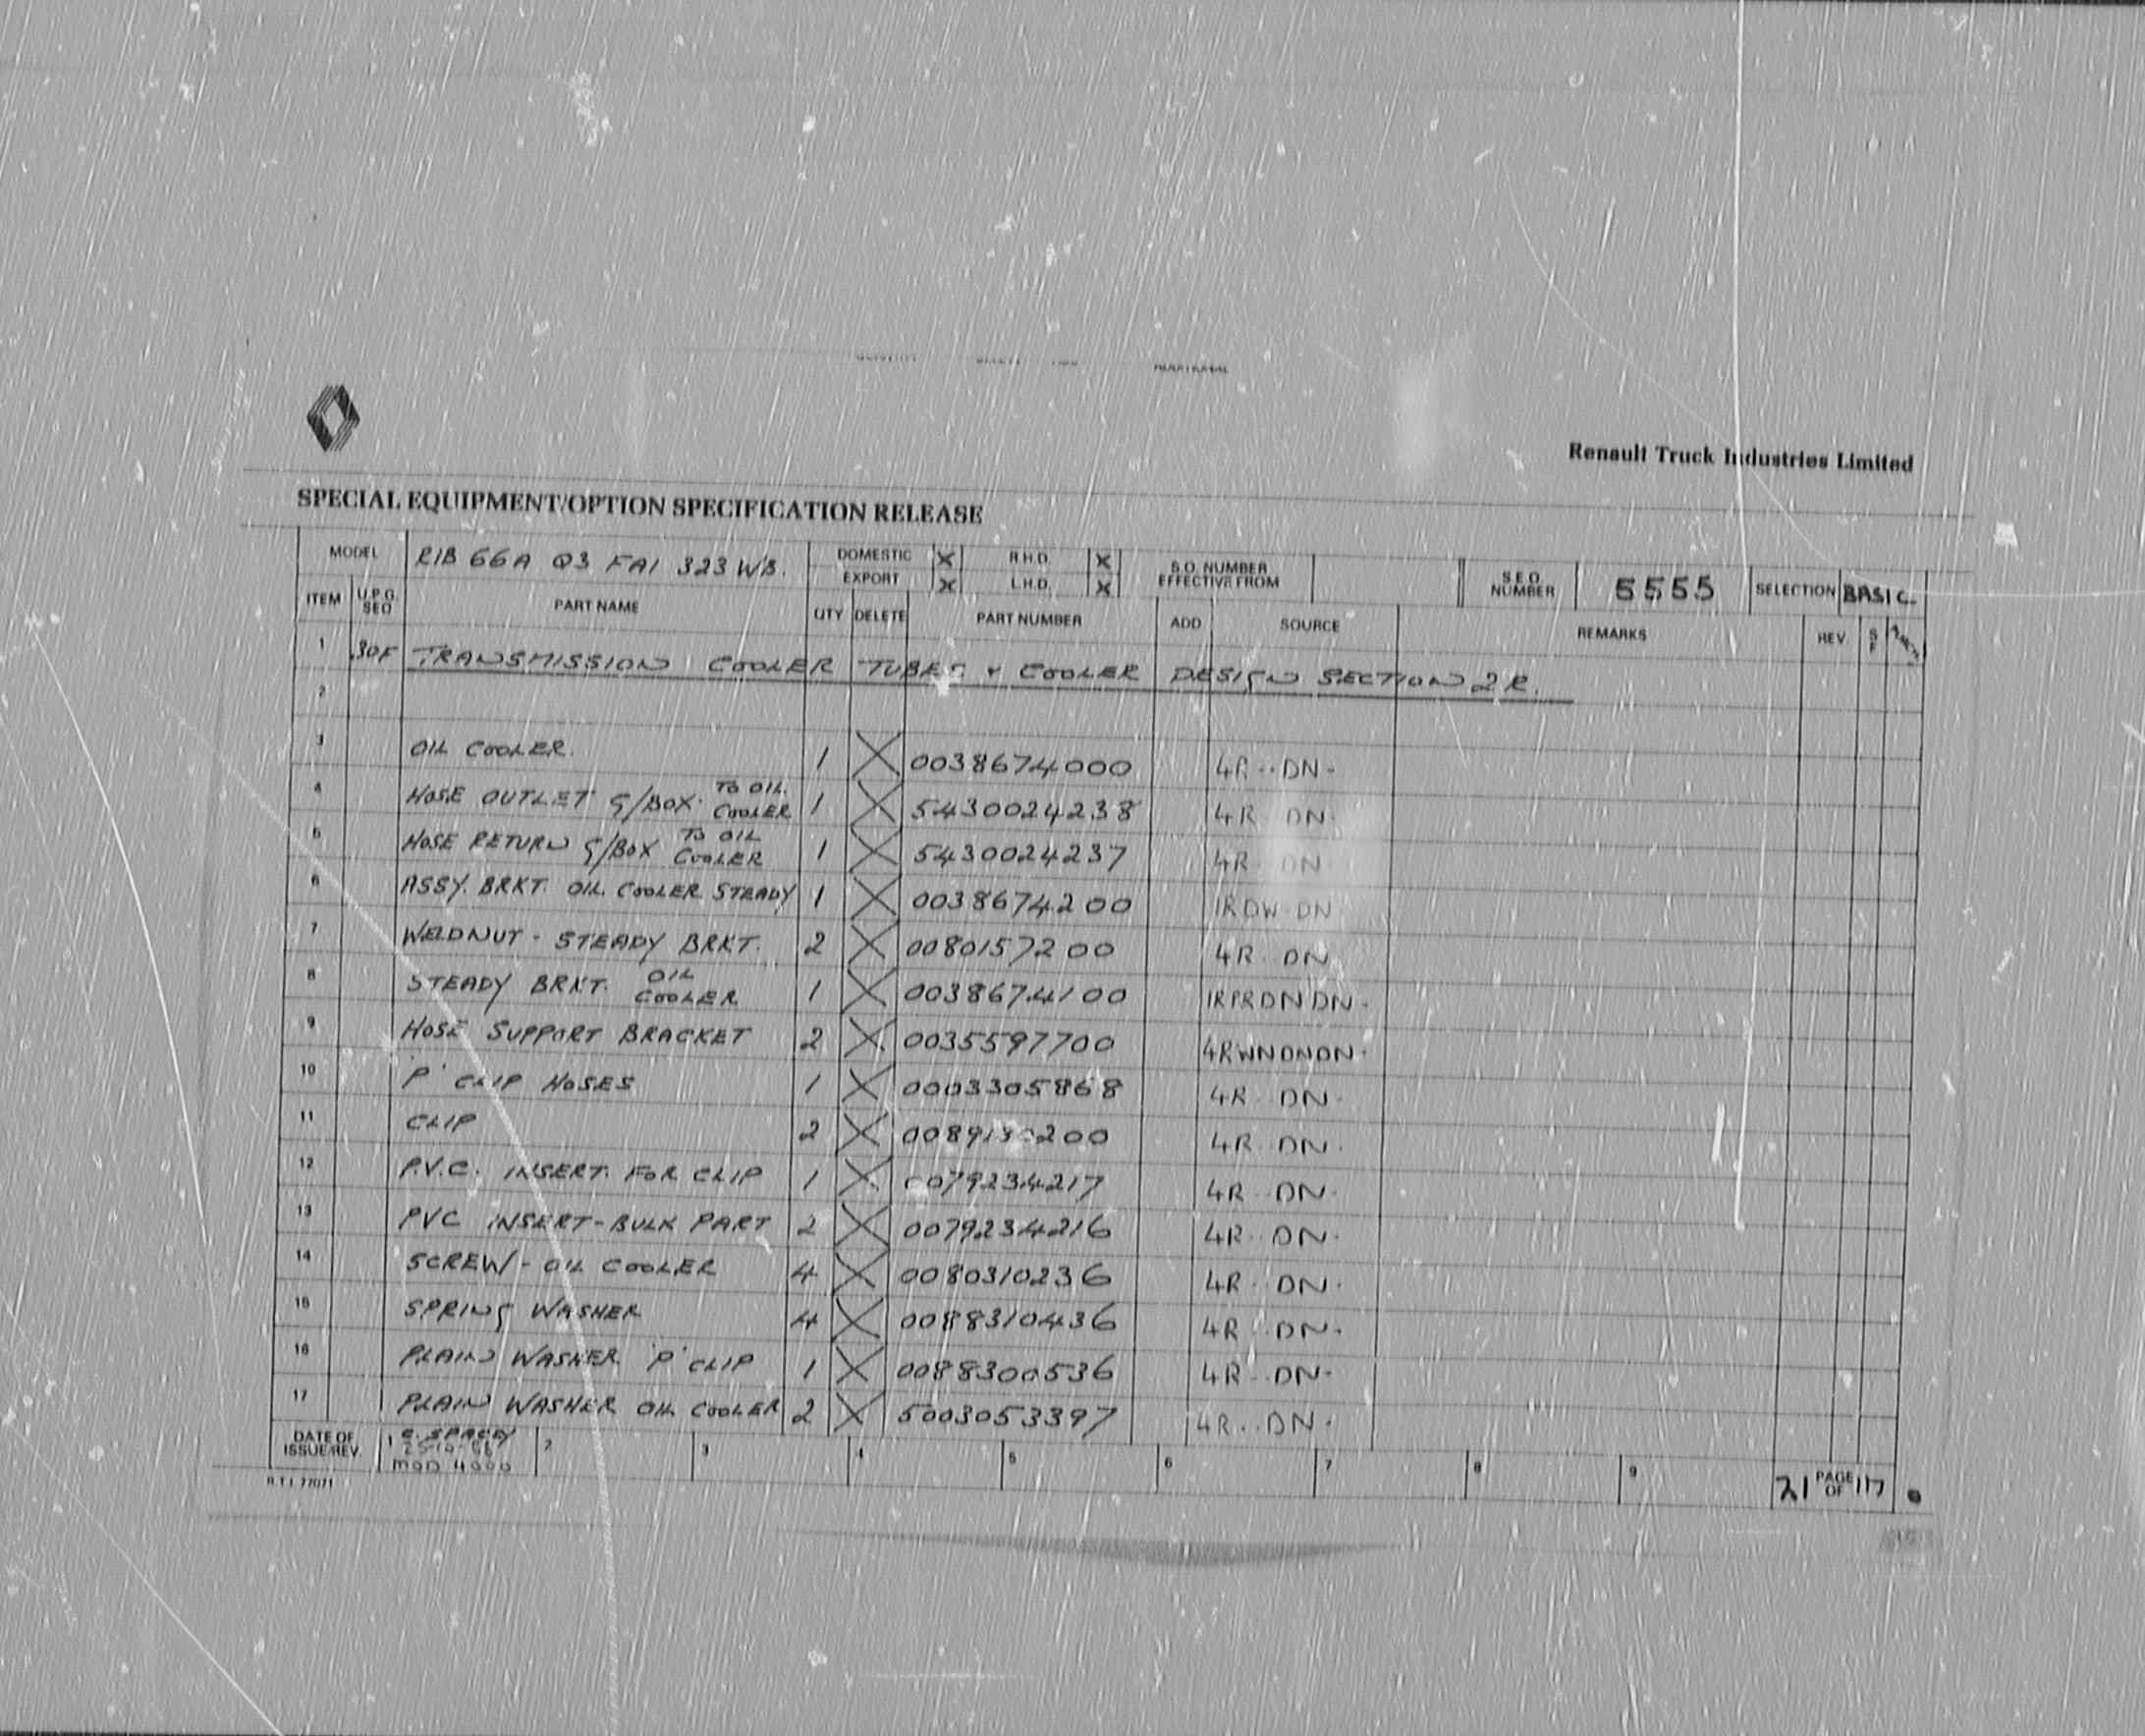 Renault Truck Industries Limited
SPECIAL EQUIPMENT/OPTION SPECIFICATION RELEASE
MODEL R1B 66A Q3 FA1 323 WB. DOMESTIC X R.H.D. X S.O. NUMBER EFFECTIVE FROM S.E.O. NUMBER 5555 SELECTION BASIC.
EXPORT X L.H.D. X
ITEM U.P.G. SEQ PART NAME QTY DELETE PART NUMBER ADD SOURCE REMARKS REV. S F
1 30F TRANSMISSION COOLER TUBES & COOLER DESIGN SECTION 2R.
2
3 OIL COOLER. 1 X 0038674000 4R··DN·
4 HOSE OUTLET G/BOX· TO OIL. COOLER 1 X 5430024238 4R DN·
5 HOSE RETURN G/BOX TO OIL COOLER 1 X 5430024237 4R· DN
6 ASSY. BRKT. OIL COOLER STEADY 1 X 0038674200 1RDW DN
7 WELDNUT - STEADY BRKT. 2 X 0080157200 4R· DN
8 STEADY BRKT. OIL COOLER 1 X 0038674100 1RPRDNDN·
9 HOSE SUPPORT BRACKET 2 X 0035597700 4RWNDNDN·
10 'P' CLIP HOSES 1 X 0003305868 4R··DN·
11 CLIP 2 X 4R··DN·
12 P.V.C. INSERT. FOR CLIP 1 X 0079234217 4R··DN·
13 PVC INSERT-BULK PART 2 X 0079234216 4R··DN·
14 SCREW - OIL COOLER 4 X 0080310236 4R··DN·
15 SPRING WASHER 4 X 0088310436 4R··DN·
16 PLAIN WASHER 'P' CLIP 1 X 0088300536 4R··DN·
17 PLAIN WASHER OIL COOLER 2 X 5003053397 4R··DN·
DATE OF ISSUE/REV. 1 2 3 4 5 6 7 8 9 21 PAGE OF 117
MOD 4000
R.T.I. 77071